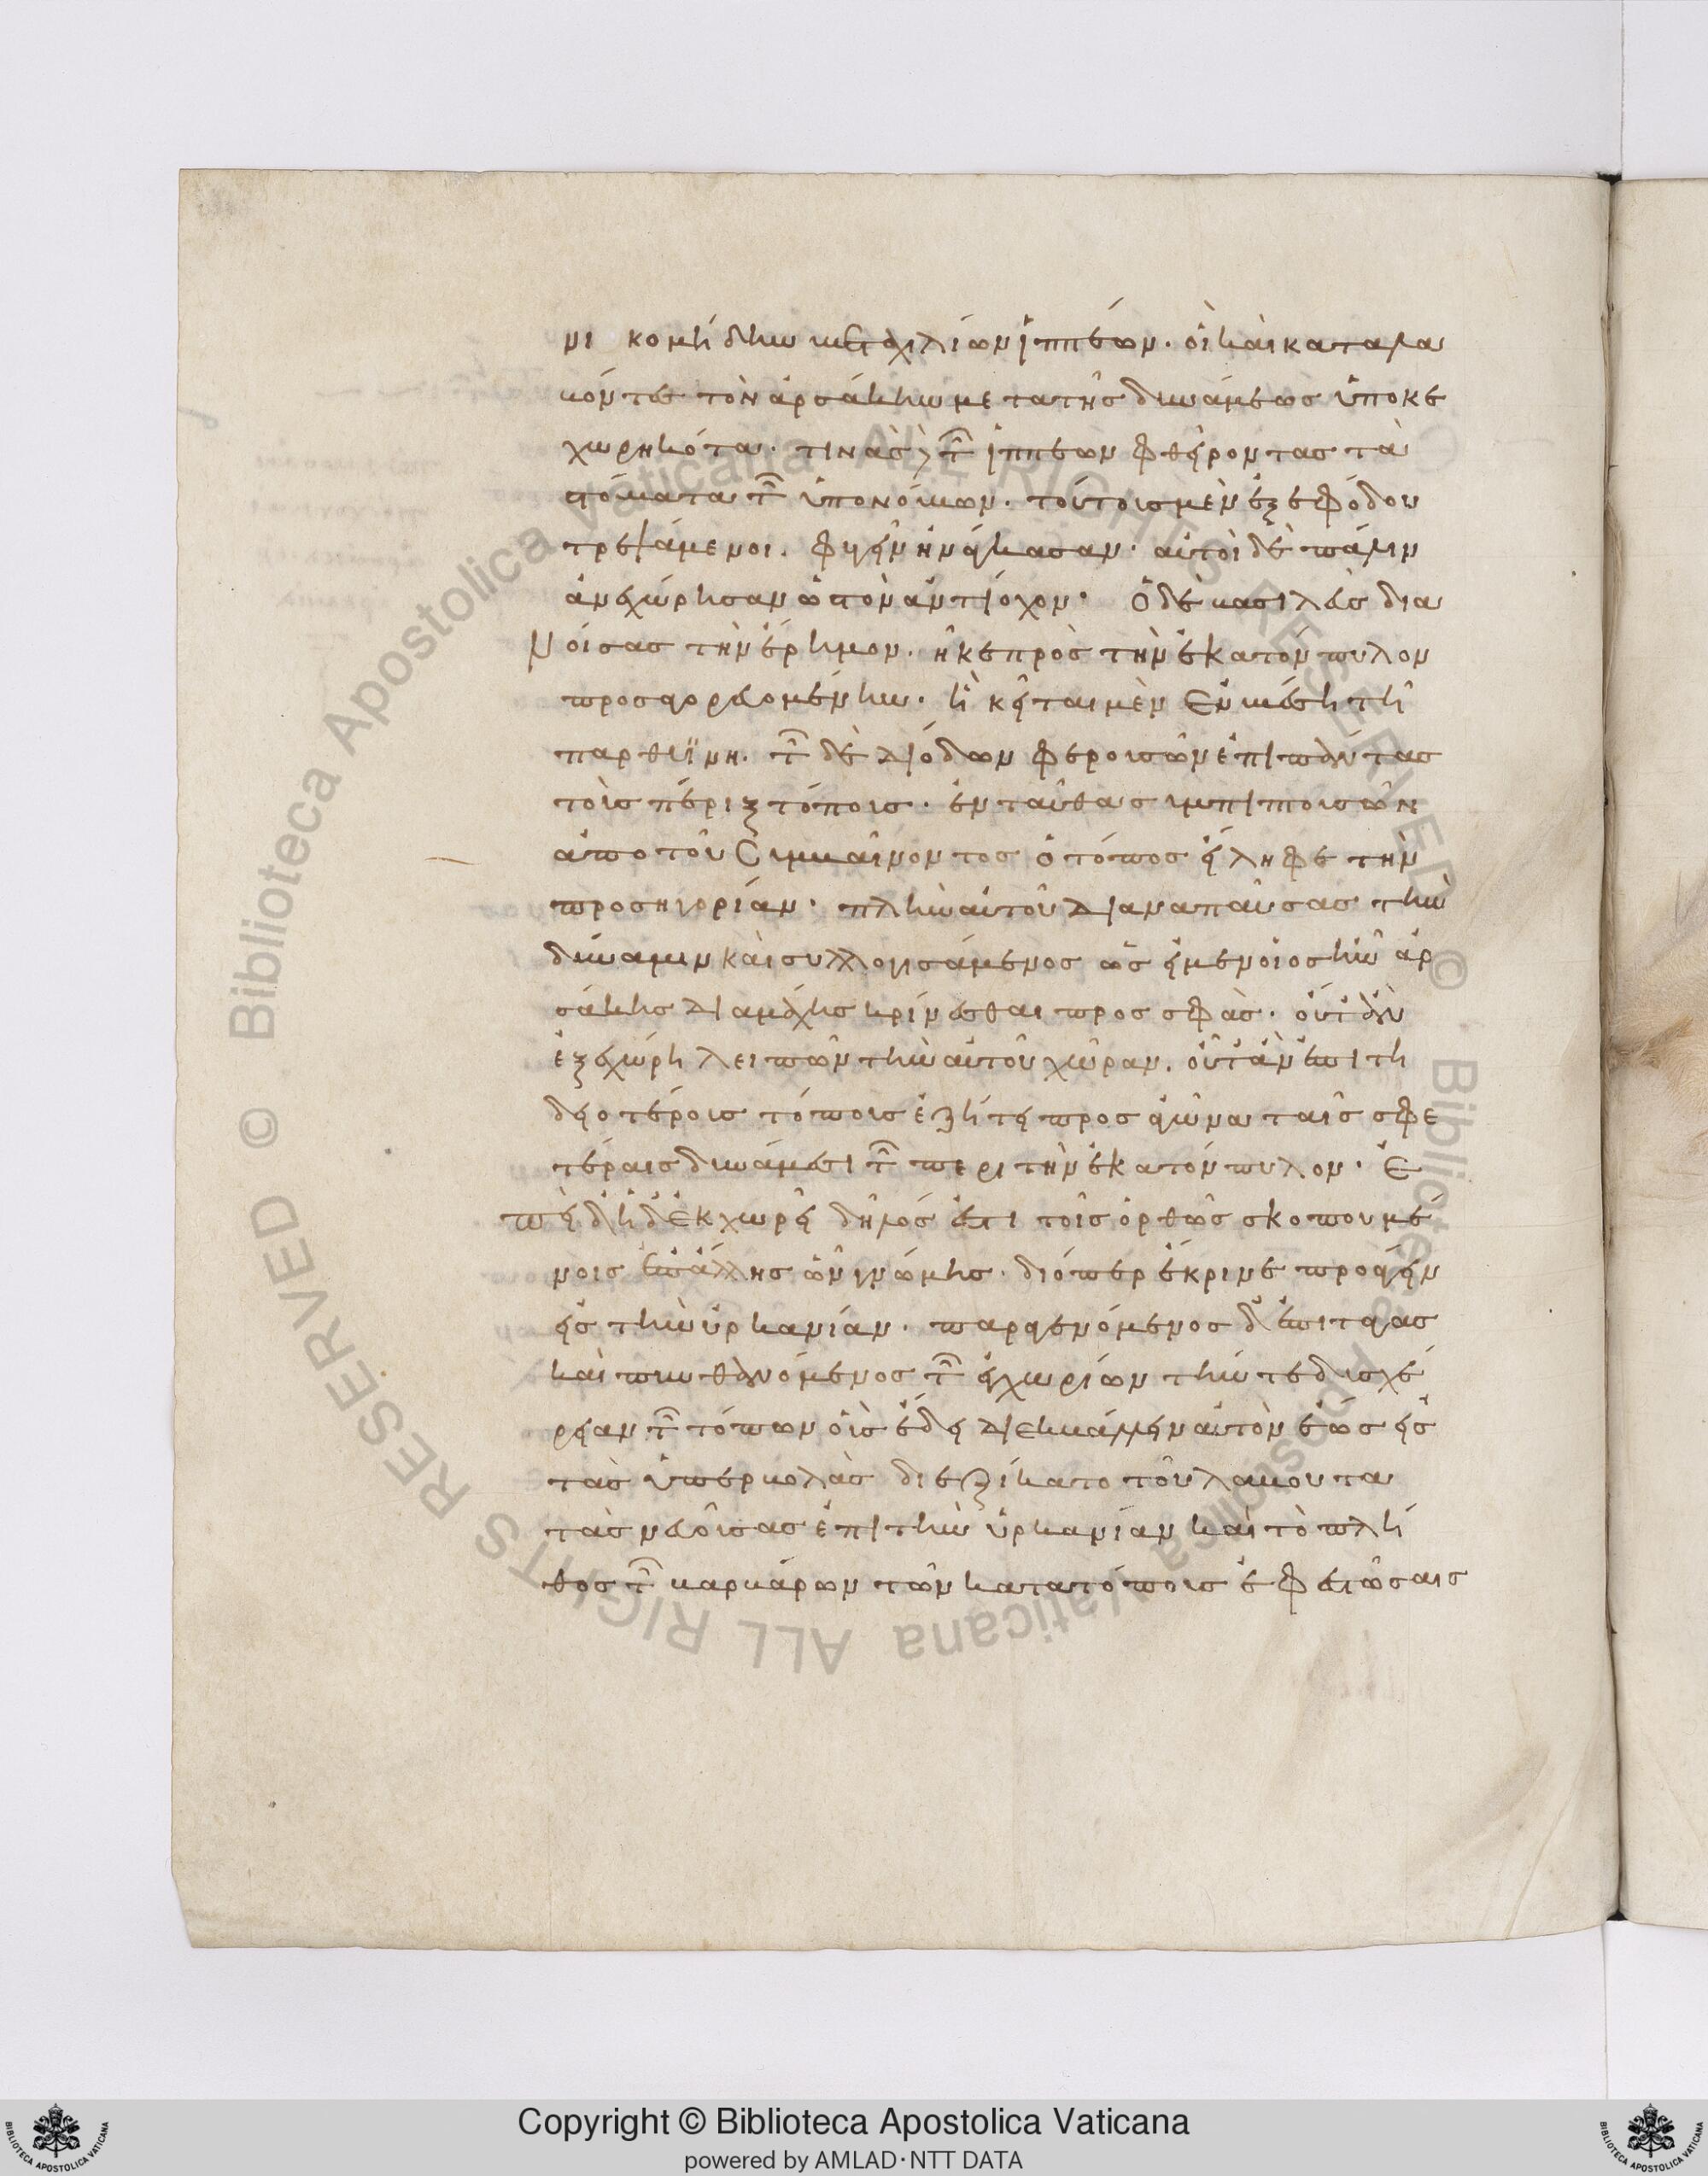 νι κομήδην μετὰ χιλίων ἱππέων· οἳ καὶ καταλα
βόντες τὸν ἀρσάκην μετὰ τῆς δυνάμεως ὑποκε
χωρηκότα· τινὰς δὲ τῶν ἱππέων φθείροντας τὰ
στόματα τῶν ὑπονόμων· τούτους μὲν ἐξ ἐφόδου
τρεψάμενοι. φυγεῖν ἠνάγκασαν· αὐτοὶ δὲ πάλιν
ἀνεχώρησαν ὡς τὸν ἀντίοχον· Ὁ δὲ βασιλεὺς δια
νύσας τὴν ἔρημον. ἧκε πρὸς τὴν ἑκατόνπυλον
προσαγορευομένην· ἣ κεῖται μὲν ἐν μέσῃ τῆ
παρθυϊνη. τῶν δὲ διόδων φερουσῶν ἐπὶ πάντας
τοὺς πέριξ τόπους· ἐνταῦθα συμπιπτουσῶν
ἀπὸ τοῦ συμβαίνοντος ὁ τόπος εἴληφε τὴν
προσηγορίαν· πλὴν αὐτοῦ διαναπαύσας τὴν
δύναμιν καὶ συλλογισάμενος ὡς εἰ μὲν οἷος ἦν ἀρ
σάκης διαμάχης κρίνεσθαι προς σφὰς· οὔτ' ἂν
ἐξεχώρη λειπὼν τὴν αὐτοῦ χώραν. οὔτ' ἂν ἐπιτη
δειοτέρους τόπους ἐζήτει προς ἀγῶνα ταῖς σφε
τέραις δυνάμεσι τῶν περι τὴν ἑκατόνπυλον· Ἐ
πεὶ δὴ δ' ἐκχωρεῖ δῆλός ἐστι τοῖς ὀρθῶς σκοπουμέ
νοις ἐπ' ἄλλης ὢν γνώμης· διόπερ ἔκρινε προάγειν
εἰς τὴν ὑρκανίαν· παραγενόμενος δ' ἐπι ταγας
καὶ πυνθανόμενος τῶν ἐγχωρίων τήν τε δυσχέ
ρειαν τῶν τόπων οὓς ἔδει διεκβάλλειν αὐτὸν ἑως εἰς
τὰς ὑπερβολὰς διεξίκατο τοῦ λαβου τα
τὰς νευούσας ἐπὶ τὴν ὑρκανίαν καὶ τὸ πλῆ
θος τῶν βαρβάρων τῶν κατα τόπους ἐφεστώσαις
Copyright © Biblioteca Apostolica Vaticana
powered by AMLAD·NTT DATA